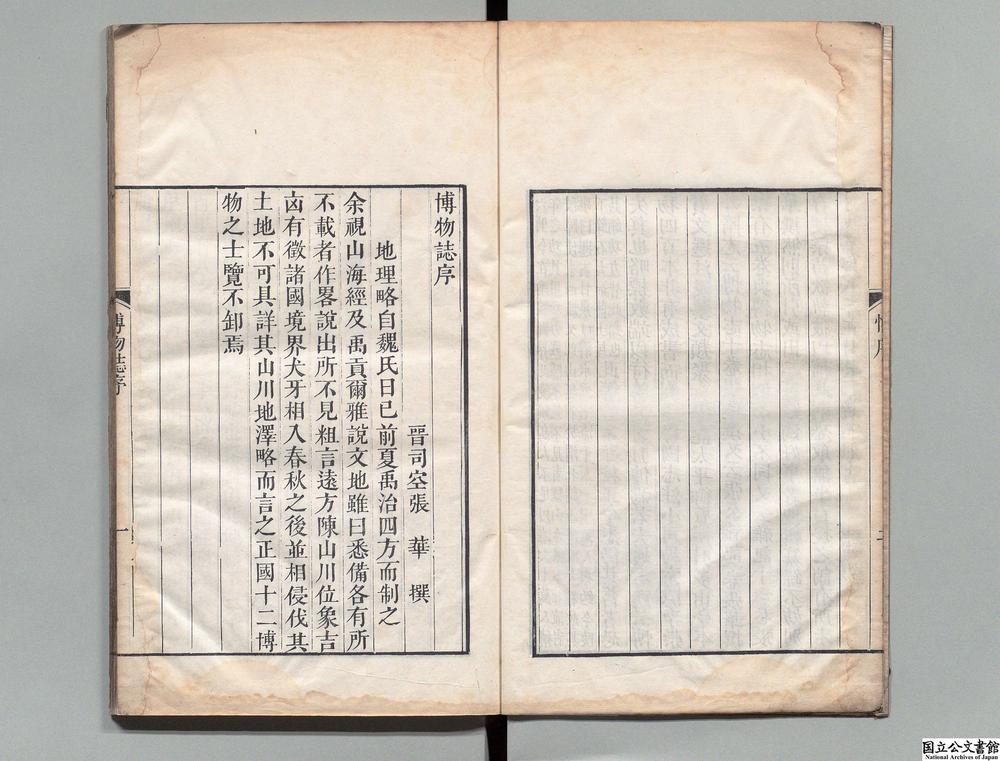 博物誌序
晉司空張　華　撰
地理略自魏氏日已前夏禹治四方而制之
余視山海經及禹貢爾雅說文地雖曰悉備各有所
不載者作畧說出所不見粗言遠方陳山川位象吉
凶有徵諸國境界犬牙相入春秋之後並相侵伐其
土地不可具詳其山川地澤略而言之正國十二博
物之士覽不卸焉
博物誌序
一
国立公文書館
National Archives of Japan